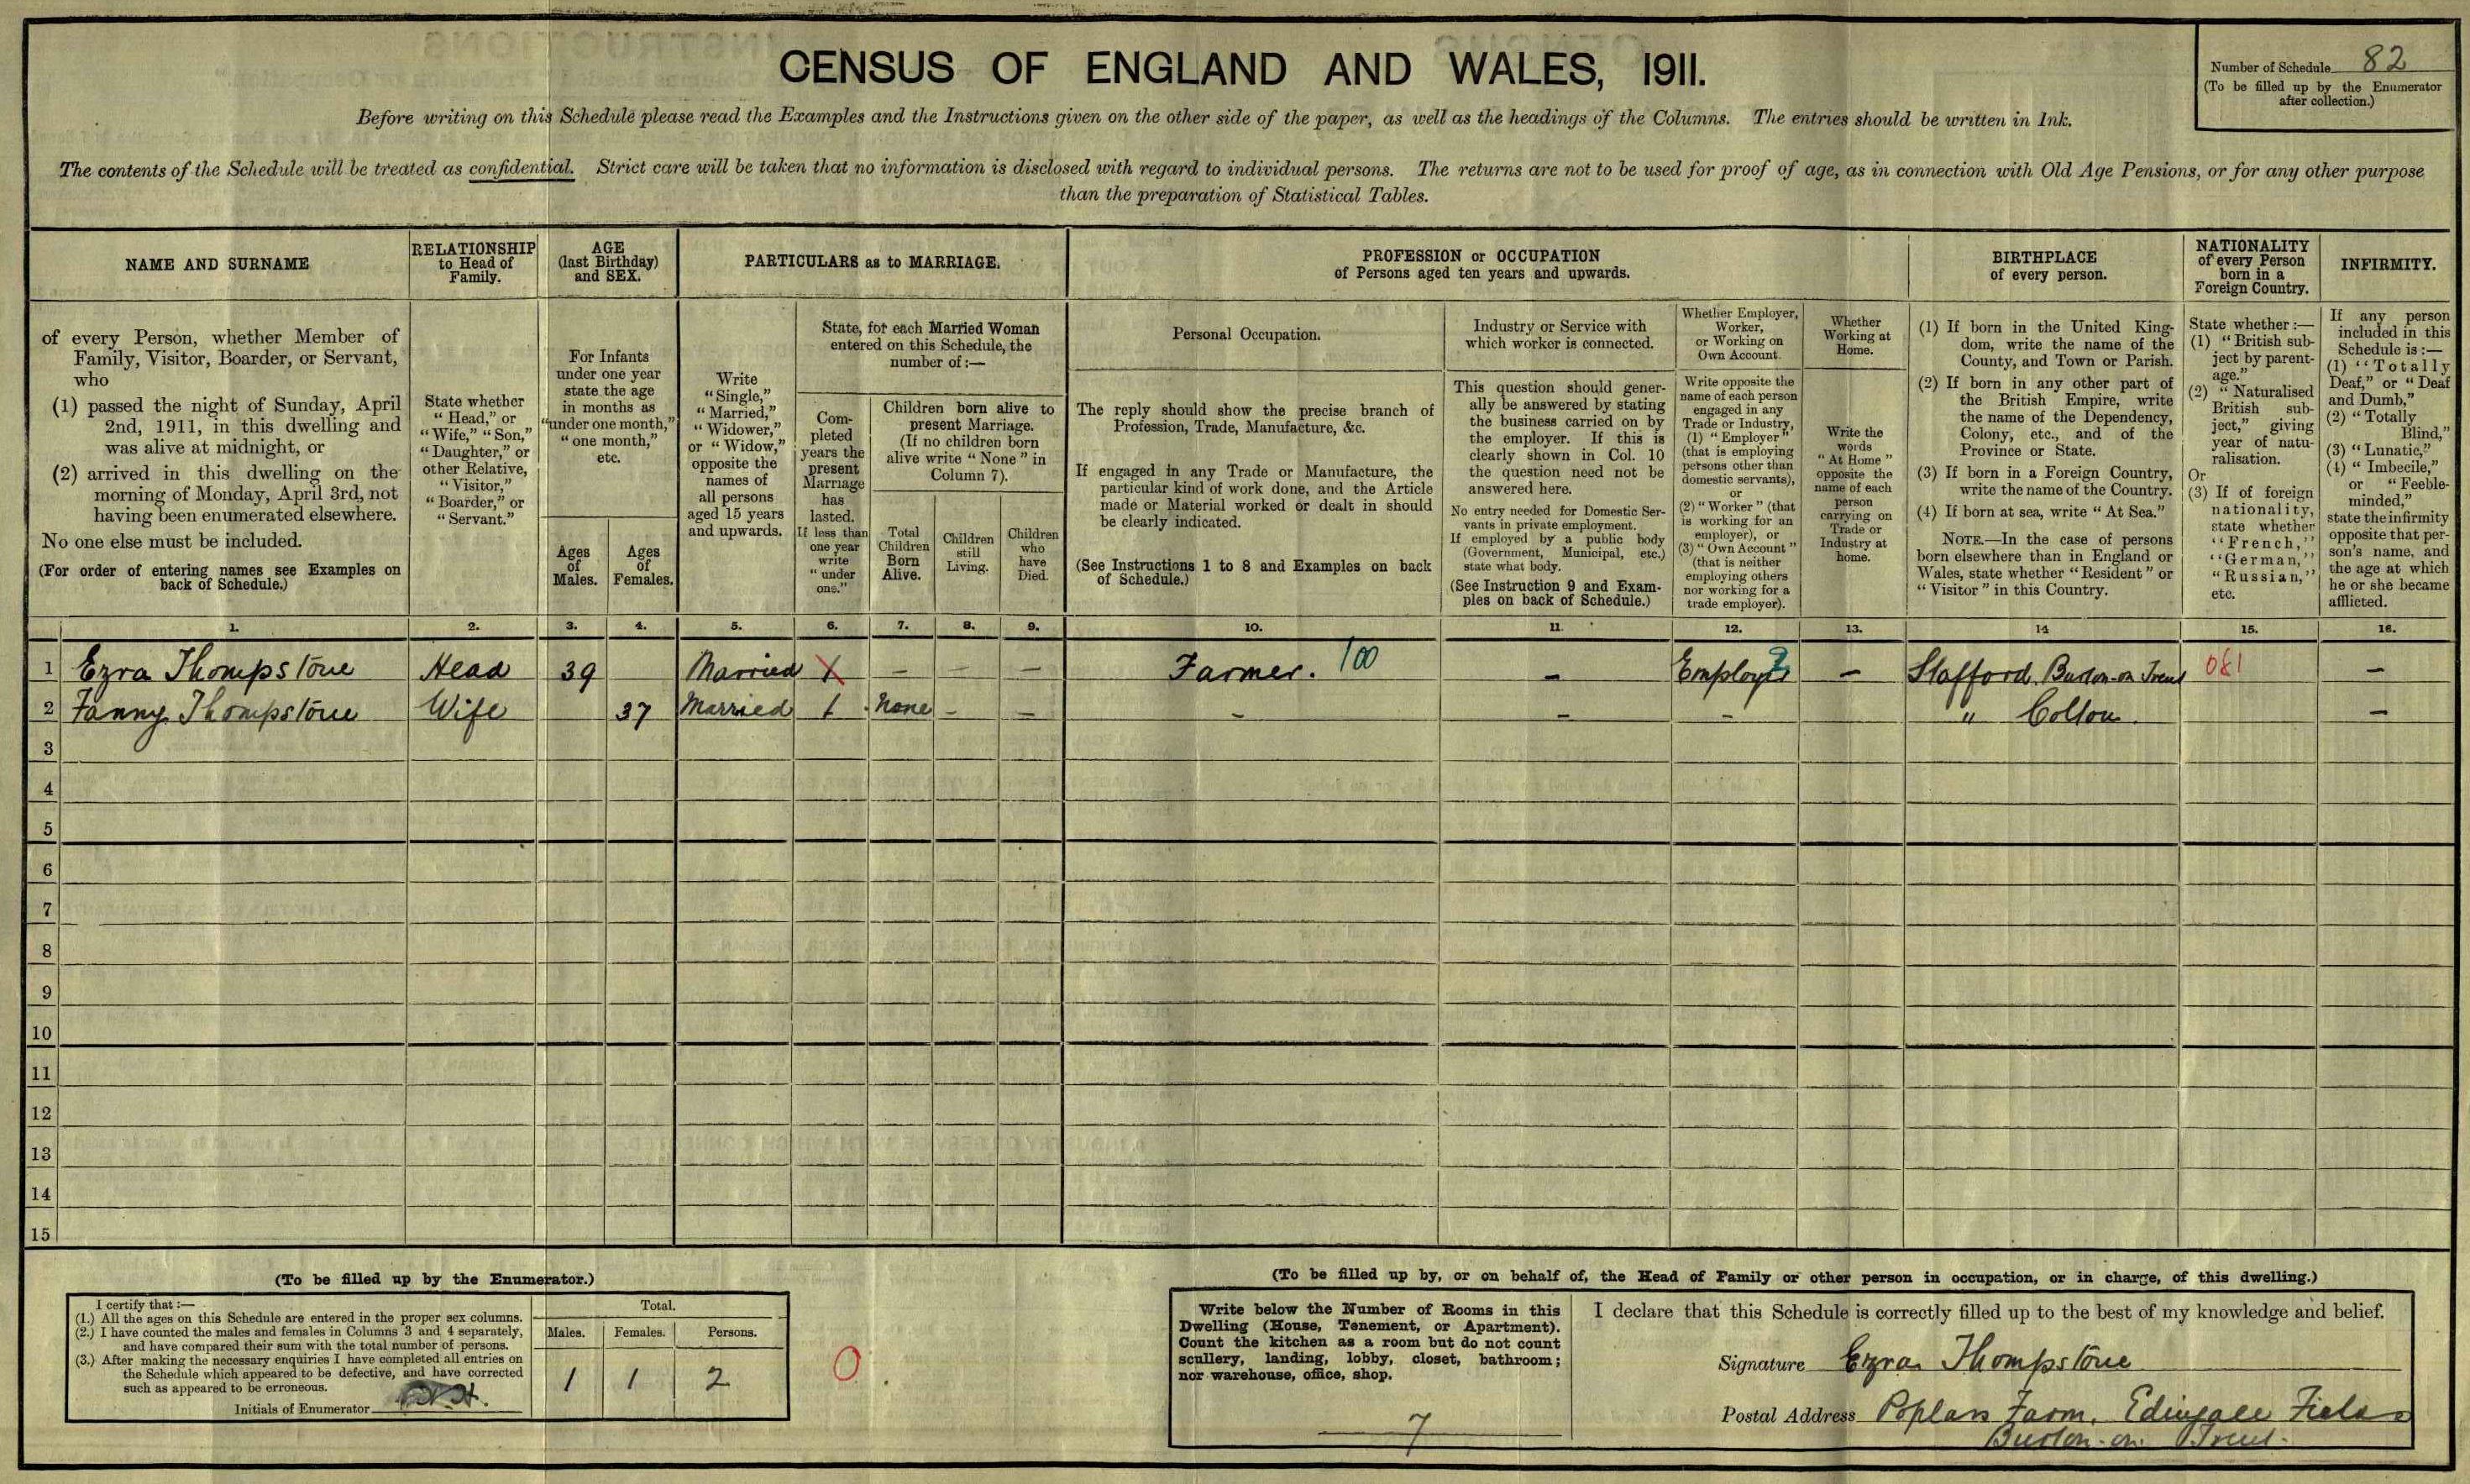 CENSUS OF ENGLAND AND WALES, 1911.
Number of Schedule 82
(To be filled up by the Enumerator
after collection.)
Before writing on this Schedule please read the Examples and the Instructions given on the other side of the paper, as well as the headings of the Columns. The entries should be written in Ink.
The contents of the Schedule will be treated as confidential. Strict care will be taken that no information is disclosed with regard to individual persons. The returns are not to be used for proof of age, as in connection with Old Age Pensions, or for any other purpose
than the preparation of Statistical Tables.
NAME AND SURNAME
of every Person, whether Member of
Family, Visitor, Boarder, or Servant,
who
(1) passed the night of Sunday, April
2nd, 1911, in this dwelling and
was alive at midnight, or
(2) arrived in this dwelling on the
morning of Monday, April 3rd, not
having been enumerated elsewhere.
No one else must be included.
(For order of entering names see Examples on
back of Schedule.)
RELATIONSHIP
to Head of
Family.
State whether
"Head," or
"Wife," "Son,"
"Daughter," or
other Relative,
"Visitor,"
"Boarder," or
"Servant."
AGE
(last Birthday)
and SEX.
For Infants
under one year
state the age
in months as
"under one month,"
"one month,"
etc.
Ages
of
Males.
Ages
of
Females.
PARTICULARS as to MARRIAGE.
Write
"Single,"
"Married,"
"Widower,"
or "Widow,"
opposite the
names of
all persons
aged 15 years
and upwards.
State, for each Married Woman
entered on this Schedule, the
number of:—
Com-
pleted
years the
present
Marriage
has
lasted.
If less than
one year
write
"under
one."
Children born alive to
present Marriage.
(If no children born
alive write "None" in
Column 7).
Total
Children
Born
Alive.
Children
still
Living.
Children
who
have
Died.
PROFESSION or OCCUPATION
of Persons aged ten years and upwards.
Personal Occupation.
The reply should show the precise branch of
Profession, Trade, Manufacture, &c.
If engaged in any Trade or Manufacture, the
particular kind of work done, and the Article
made or Material worked or dealt in should
be clearly indicated.
(See Instructions 1 to 8 and Examples on back
of Schedule.)
Industry or Service with
which worker is connected.
This question should gener-
ally be answered by stating
the business carried on by
the employer. If this is
clearly shown in Col. 10
the question need not be
answered here.
No entry needed for Domestic Ser-
vants in private employment.
If employed by a public body
(Government, Municipal, etc.)
state what body.
(See Instruction 9 and Exam-
ples on back of Schedule.)
Whether Employer,
Worker,
or Working on
Own Account.
Write opposite the
name of each person
engaged in any
Trade or Industry,
(1) "Employer"
(that is employing
persons other than
domestic servants),
or
(2) "Worker" (that
is working for an
employer), or
(3) "Own Account"
(that is neither
employing others
nor working for a
trade employer).
Whether
Working at
Home.
Write the
words
"At Home"
opposite the
name of each
person
carrying on
Trade or
Industry at
home.
BIRTHPLACE
of every person.
(1) If born in the United King-
dom, write the name of the
County, and Town or Parish.
(2) If born in any other part of
the British Empire, write
the name of the Dependency,
Colony, etc., and of the
Province or State.
(3) If born in a Foreign Country,
write the name of the Country.
(4) If born at sea, write "At Sea."
NOTE.—In the case of persons
born elsewhere than in England or
Wales, state whether "Resident" or
"Visitor" in this Country.
NATIONALITY
of every Person
born in a
Foreign Country.
State whether:—
(1) "British sub-
ject by parent-
age."
(2) "Naturalised
British sub-
ject," giving
year of natu-
ralisation.
Or
(3) If of foreign
nationality,
state whether
"French,"
"German,"
"Russian,"
etc.
INFIRMITY.
If any person
included in this
Schedule is:—
(1) "Totally
Deaf," or "Deaf
and Dumb,"
(2) "Totally
Blind,"
(3) "Lunatic,"
(4) "Imbecile,"
or "Feeble-
minded,"
state the infirmity
opposite that per-
son's name, and
the age at which
he or she became
afflicted.
1. 2. 3. 4. 5. 6. 7. 8. 9. 10. 11. 12. 13. 14 15. 16.
1 Ezra Thompstone Head 39 Married 1 — — — Farmer. 100 — Employer 2 — Stafford. Burton-on Trent 081 —
2 Fanny Thompstone Wife 37 Married 1 None — — — — — " Colton. —
3
4
5
6
7
8
9
10
11
12
13
14
15
(To be filled up by the Enumerator.)
I certify that:—
(1.) All the ages on this Schedule are entered in the proper sex columns.
(2.) I have counted the males and females in Columns 3 and 4 separately,
and have compared their sum with the total number of persons.
(3.) After making the necessary enquiries I have completed all entries on
the Schedule which appeared to be defective, and have corrected
such as appeared to be erroneous.
Initials of Enumerator
Total.
Males. Females. Persons.
1 1 2
0
(To be filled up by, or on behalf of, the Head of Family or other person in occupation, or in charge, of this dwelling.)
Write below the Number of Rooms in this
Dwelling (House, Tenement, or Apartment).
Count the kitchen as a room but do not count
scullery, landing, lobby, closet, bathroom;
nor warehouse, office, shop.
7
I declare that this Schedule is correctly filled up to the best of my knowledge and belief.
Signature Ezra Thompstone
Postal Address Poplars Farm, Edingale Fields
Burton-on-Trent.